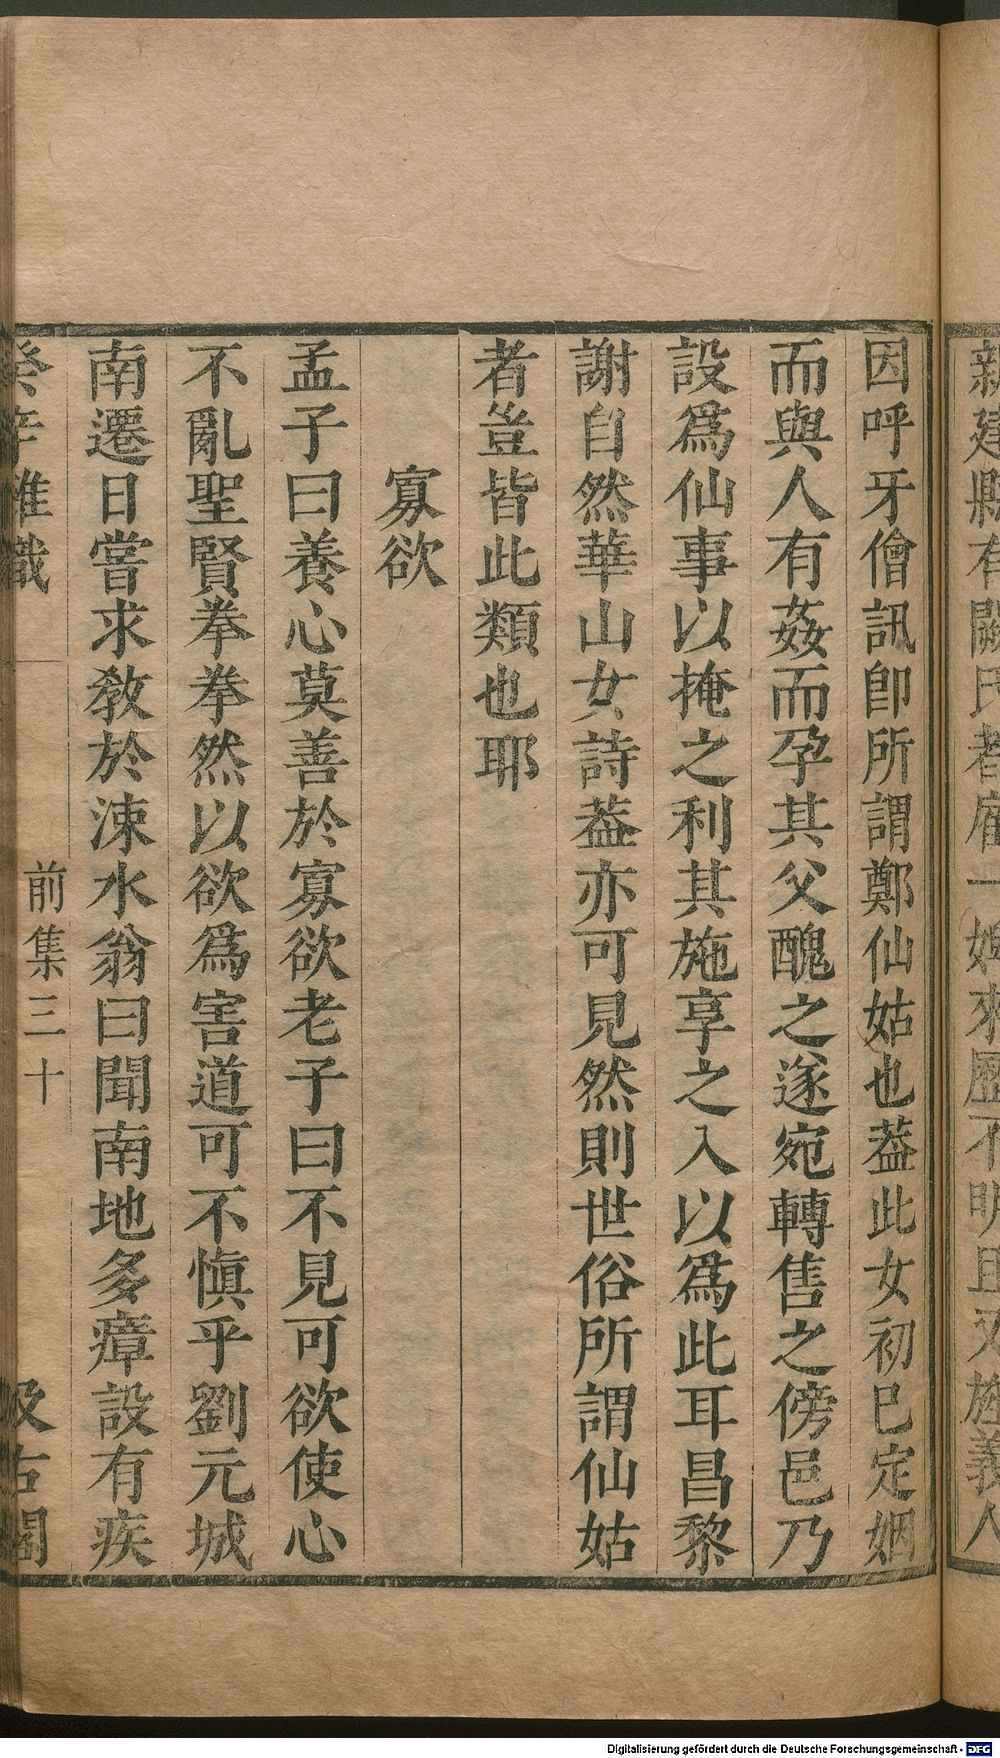 新建縣有闞氏者雇一婢來歷不明且又旌義人
因呼牙儈訊卽所謂鄭仙姑也葢此女初巳定姻
而與人有姦而孕其父醜之遂宛轉售之傍邑乃
設爲仙事以掩之利其施享之入以爲此耳昌黎
謝自然華山女詩葢亦可見然則世俗所謂仙姑
者豈皆此類也耶
寡欲
孟子曰養心莫善於寡欲老子曰不見可欲使心
不亂聖賢拳拳然以欲爲害道可不愼乎劉元城
南遷日嘗求敎於涑水翁曰聞南地多瘴設有疾
癸辛雜識 前集三十 汲古閣
Digitalisierung gefördert durch die Deutsche Forschungsgemeinschaft - DFG